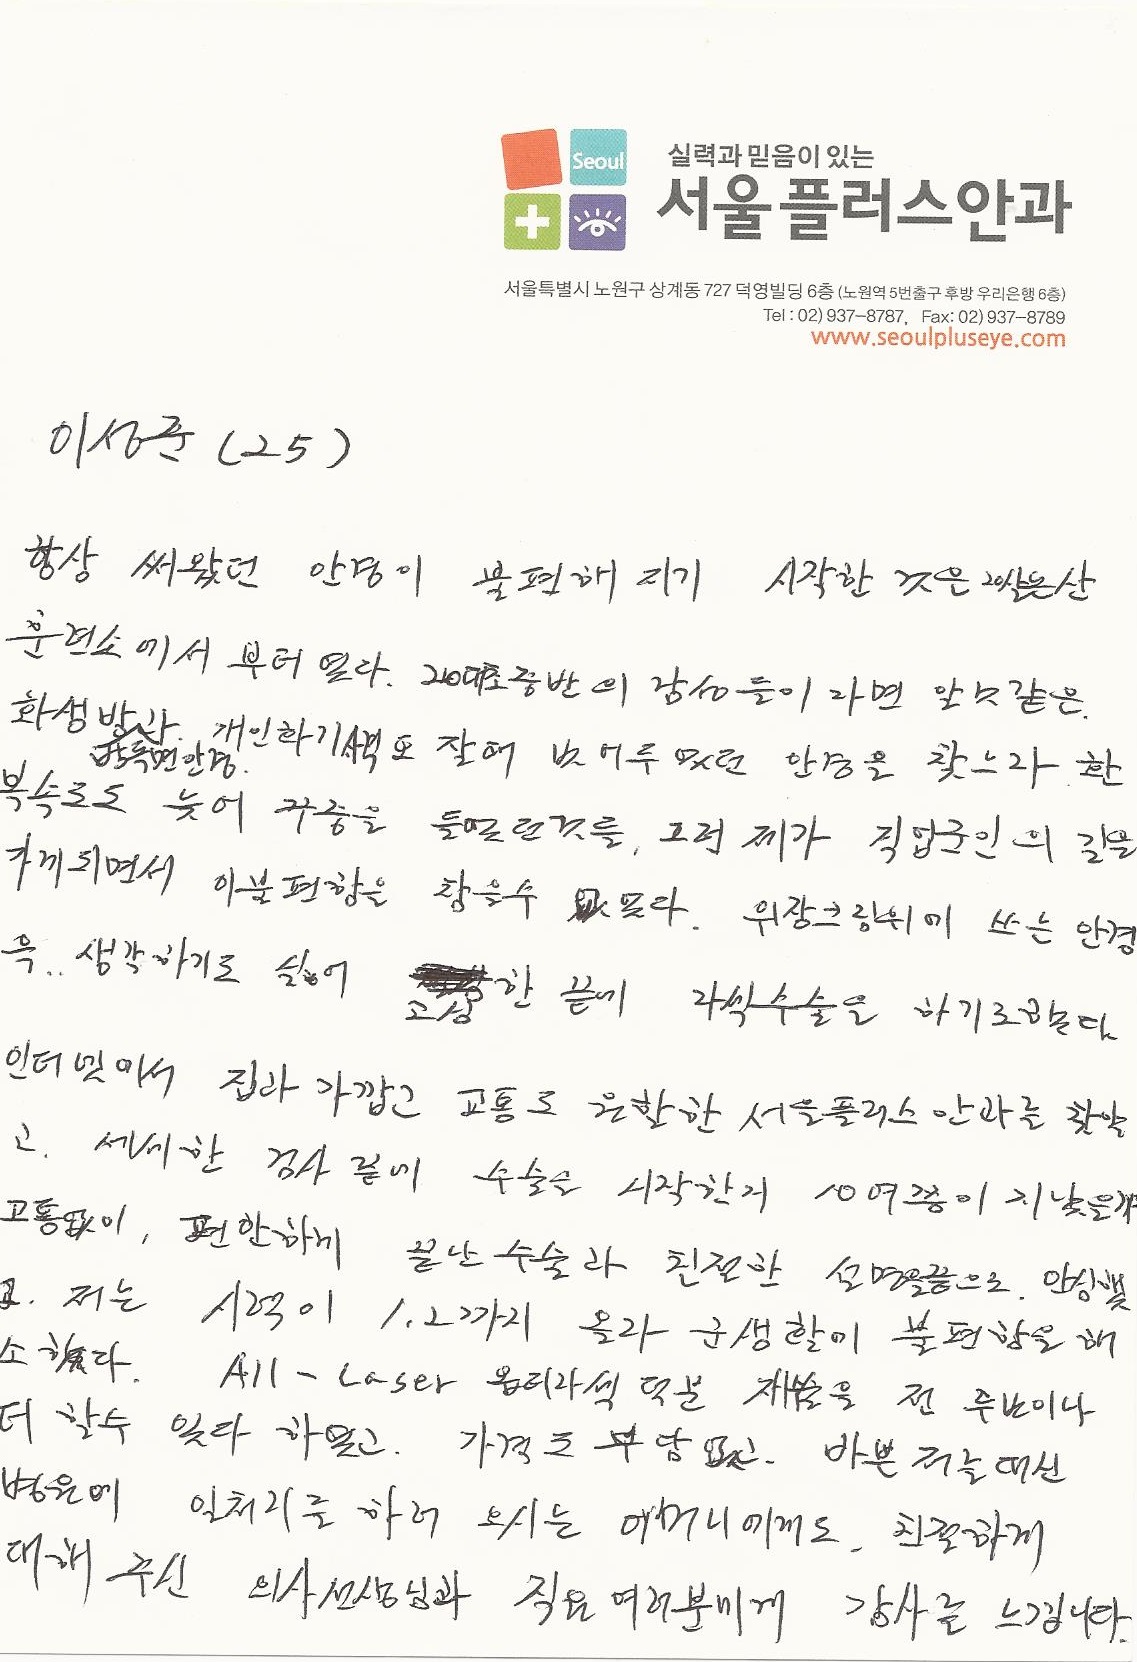 Seoul
실력과 믿음이 있는
서울플러스안과
서울특별시 노원구 상계동 727 덕영빌딩 6층 (노원역 5번출구 후방 우리은행 6층)
Tel : 02) 937-8787, Fax: 02) 937-8789
www.seoulpluseye.com
이성준 (25)
항상 써왔던 안경이 불편해 지기 시작한 것은 20살 논산
훈련소에서 부터 였다. 20대초중반의 감성들이라면
화생방과. 개인화기사격도 잘때 벗어두었던 안경을 찾느라 한
방독면안경.
복속로도 늦어 꾸중을 들었던것을, 그런 제가 직업군인의 길을
가게되면서 이불편함을 참을수 없었다. 위장크림위에 쓰는 안경
윽.. 생각하기도 싫어 한 끝에 라식수술을 하기로했다
고심
인터넷에서 집과 가깝고 교통도 원활한 서울플러스안과를 찾았
고. 세세한 검사 끝에 수술을 시작한지 10여분이 지났을까
고통없이, 편안하게 끝난 수술과 친절한 설명으로.
고. 저는 시력이 1.2까지 올라 군생활이 불편함을 해
소했다. All-Laser 옵티라식 덕분 재수술을 전 두번이나
더 할수 있다 하였고. 가격도 부담없고. 바쁜 저를대신
병원에 일처리를 하러 오시는 어머니에게도. 친절하게
대해 주신 의사선생님과 직원여러분에게 감사를 느낍니다.